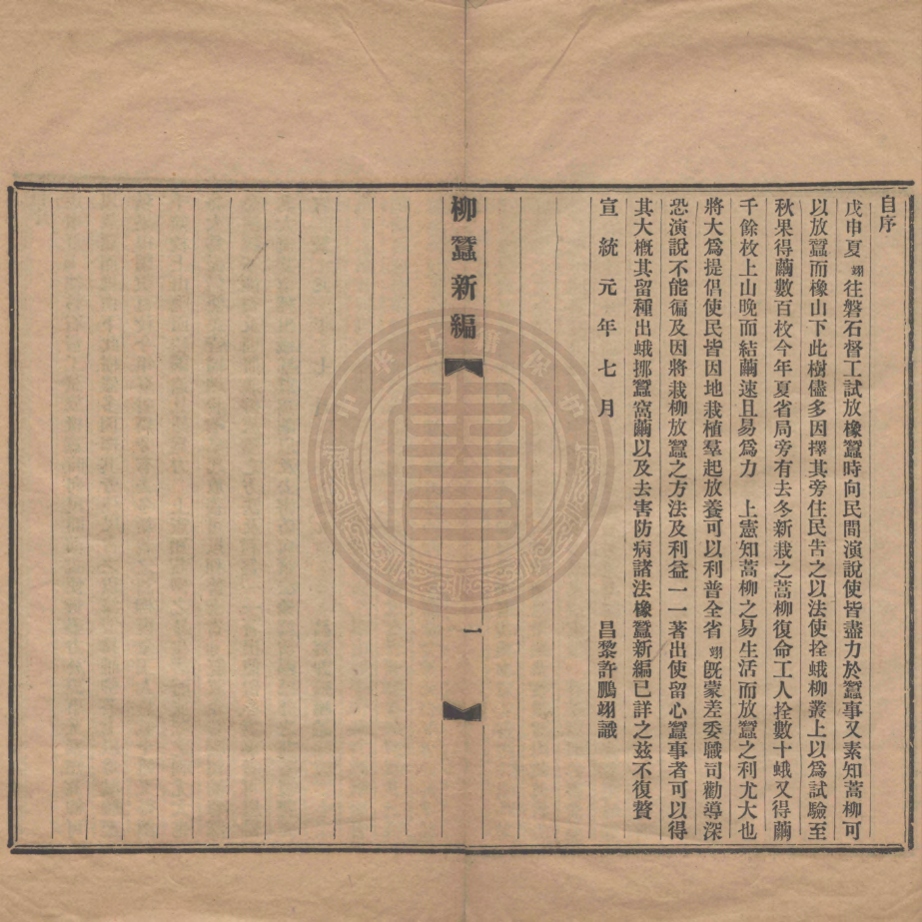 自序
戊申夏翊往磐石督工試放橡蠶時向民間演說使皆盡力於蠶事又素知蒿柳可
以放蠶而橡山下此樹儘多因擇其旁住民告之以法使拴蛾柳叢上以爲試驗至
秋果得繭數百枚今年夏省局旁有去冬新栽之蒿柳復命工人拴數十蛾又得繭
千餘枚上山晚而結繭速且易爲力　上憲知蒿柳之易生活而放蠶之利尤大也
將大爲提倡使民皆因地栽植羣起放養可以利普全省翊旣蒙差委職司勸導深
恐演說不能徧及因將栽柳放蠶之方法及利益一一著出使留心蠶事者可以得
其大槪其留種出蛾挪蠶窩繭以及去害防病諸法橡蠶新編已詳之玆不復贅
宣統元年七月　昌黎許鵬翊識
柳蠶新編
一